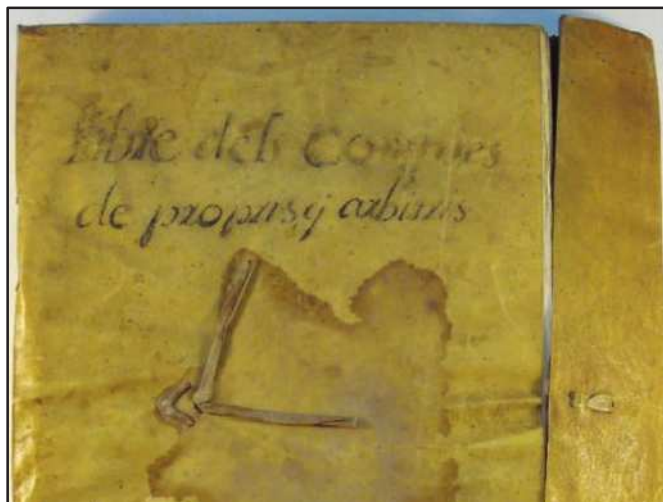 llibre dels Comptes
de propris, y arbitris